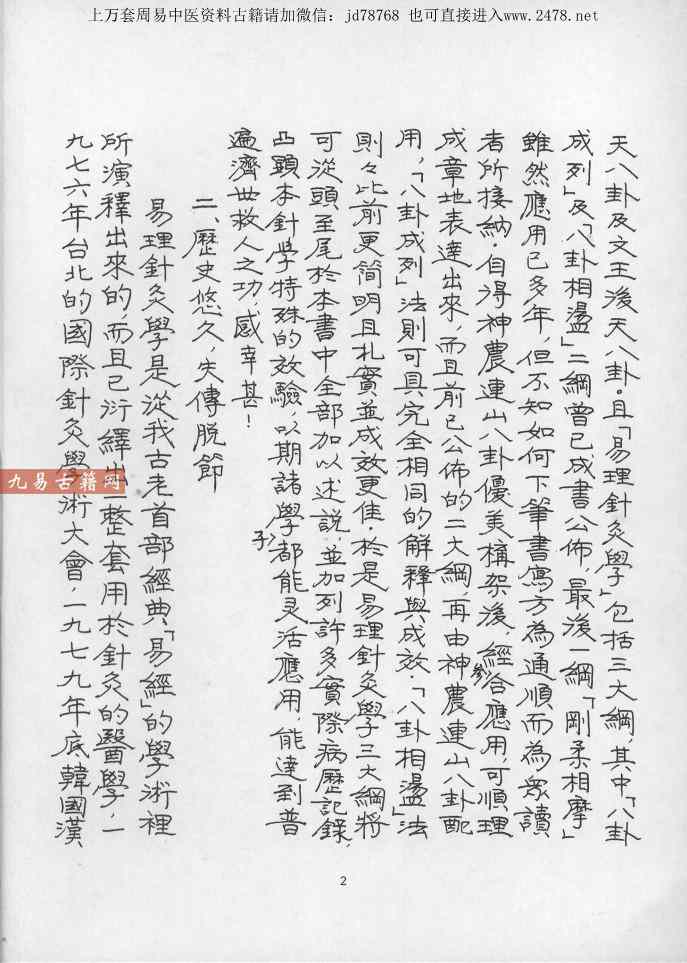 上万套周易中医资料古籍请加微信：jd78768 也可直接进入www.2478.net
天八卦及文王後天八卦．且「易理針灸學」包括三大綱，其中「八卦
成列」及「八卦相盪」二綱曾已成書公佈，最後一綱「剛柔相摩」
雖然應用已多年，但不知如何下筆書寫方為通順而為眾讀
者所接納．自得神農連山八卦優美構架後，經參合應用，可順理
成章地表達出來，而且前已公佈的二大綱，再由神農連山八卦配
用，「八卦成列」法則可具完全相同的解釋與成效．「八卦相盪」法
則々比前更简明且札實並成效更佳．於是易理針灸學三大綱將
可從頭至尾於本書中全部加以述説，並加列許多實際病歷記錄，
凸顯本針學特殊的效驗，以期諸學子都能灵活應用，能達到普
遍濟世救人之功，感幸甚！
二、歷史悠久，失傳脱節
易理針灸學是從我古老首部經典「易經」的學術裡
所演釋出來的，而且已衍繹出一整套用於針灸的醫學，一
九七六年台北的國際針灸學術大會，一九七九年底韓國漢
九易古籍网
2